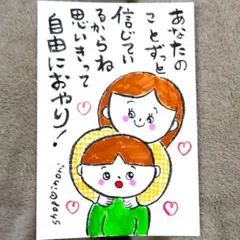 あなたの
ことずっと
信じてい
るからね
思いきって
自由におやり!